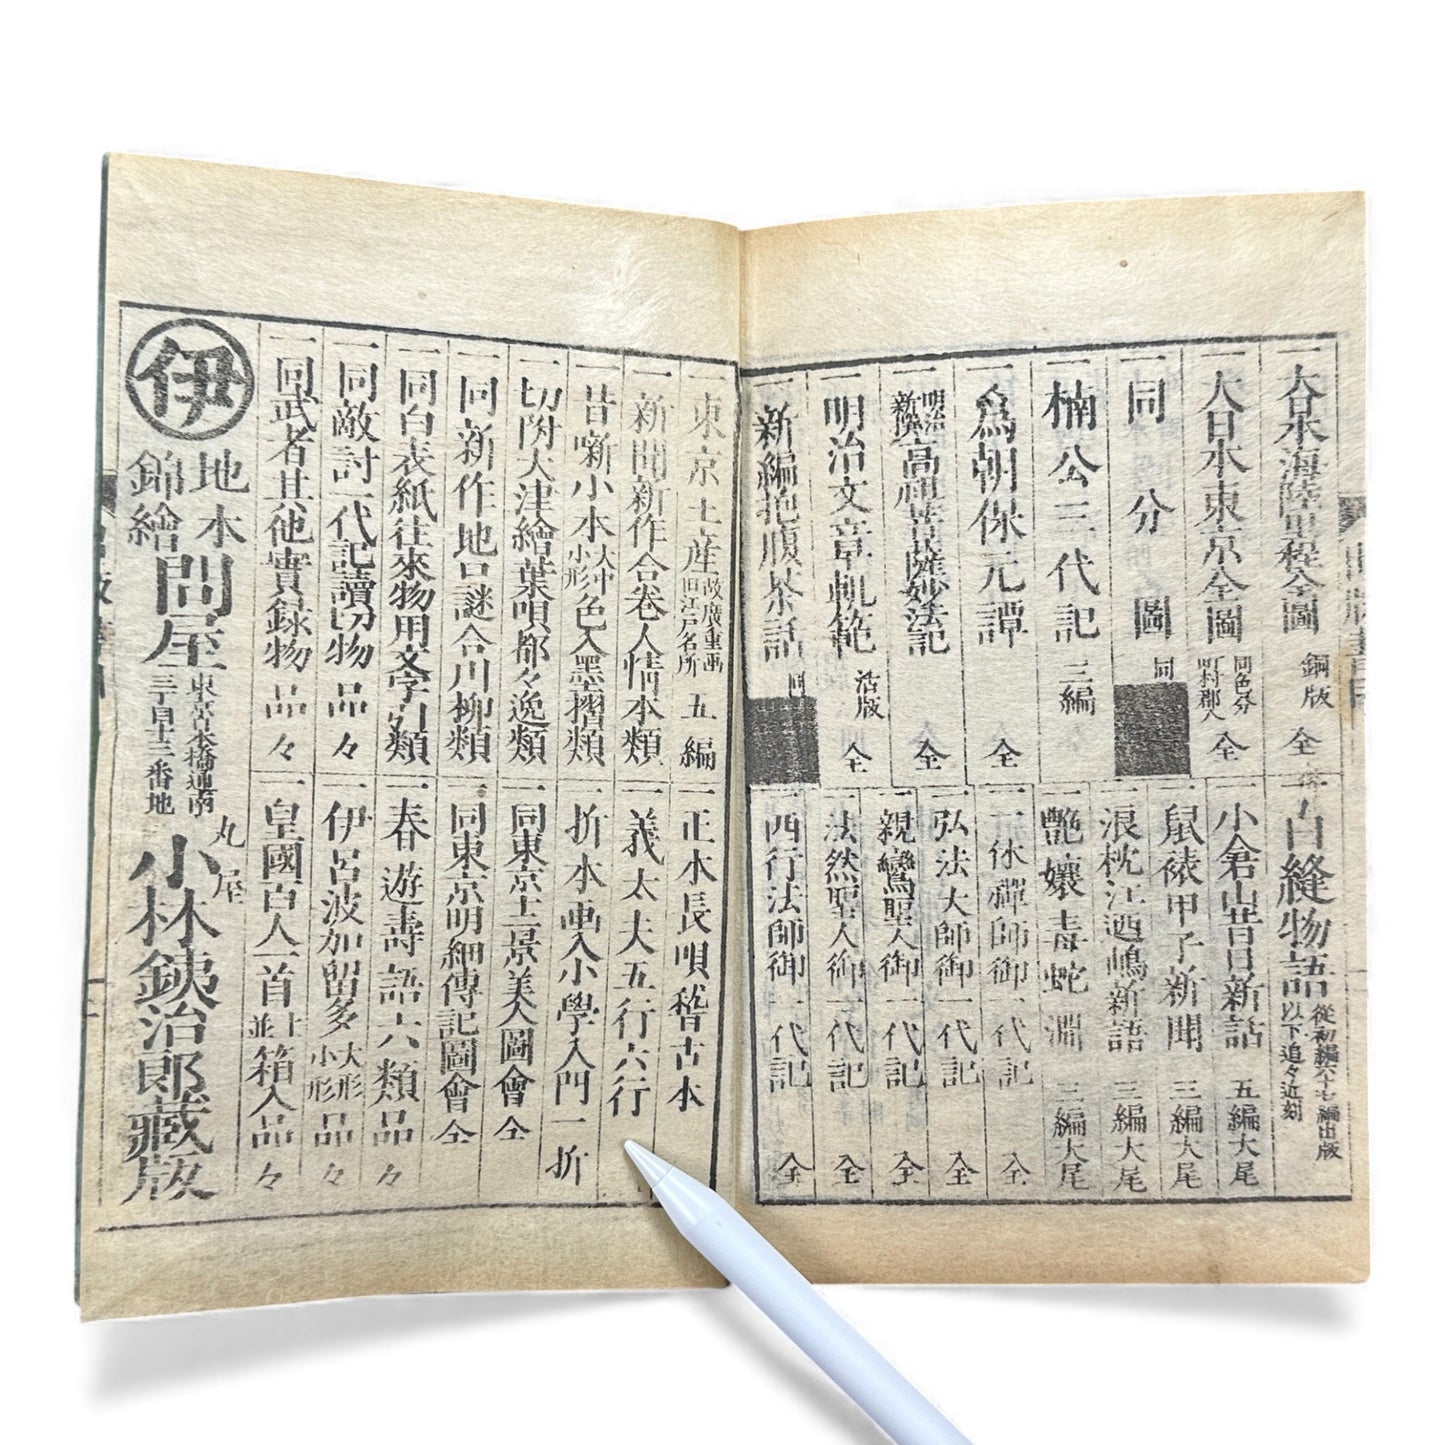 一大日本海陸里程全圖 銅版 全
一大日本東京全圖 同色分 町村郡入 全
一同 分圖 同
一楠公三代記 三編
一爲朝保元譚 全
一明治新撰高祖菩薩妙法記 全
一明治文章軌範 活版 全
一新編抱腹茶話 同
一白縫物語 從初編六十七編出版 以下追々近刻
一小倉山昔日新話 五編大尾
一鼠裱甲子新聞 三編大尾
一浪枕江迺嶋新語 三編大尾
一艷孃毒蛇淵 三編大尾
一一休禪師御一代記 全
一弘法大師御一代記 全
一親鸞聖人御一代記 全
一法然聖人御一代記 全
一西行法師御一代記 全
一東京土産 故廣重画 旧江戸名所 五編
一新聞新作合卷人情本類
一昔噺小本 大中小形 色入墨摺類
一切附大津繪葉唄都々逸類
一同新作地口謎合川柳類
一同白表紙往來物用文字引類
一同敵討一代記讀切物品々
一同武者其他實録物品々
一正本長唄稽古本
一義太夫五行六行
一折本画入小學入門一折
一同東京十二景美人圖會 全
一同東京明細傳記圖會 全
一春遊壽語六類品々
一伊呂波加留多 大形 小形 品々
一皇國百人一首 上並 箱入品々
伊
地本
錦繪
問屋
東京本橋通南
三丁目十三番地
丸屋
小林銕治郎藏版